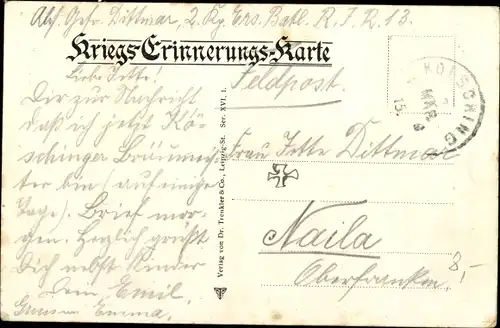 Abs. Gefr. Dittmar, 2. Kp. Ers. Batl. R. I. R. 13.
Kriegs-Erinnerungs-Karte
Feldpost.
KÖSCHING
MAR
15.
Liebe Jette!
Dir zur Nachricht
daß ich jetzt Kö-
schinger Bräumeis-
ter bin (auf einige
Tage). Brief mor-
gen. Herzlich grüßt
Dich nebst Kinder
Dein Emil.
Emma.
Verlag von Dr. Trenkler & Co., Leipzig-St. Ser. XVI, 1.
Frau Jette Dittmar
Naila
Oberfranken
8,-